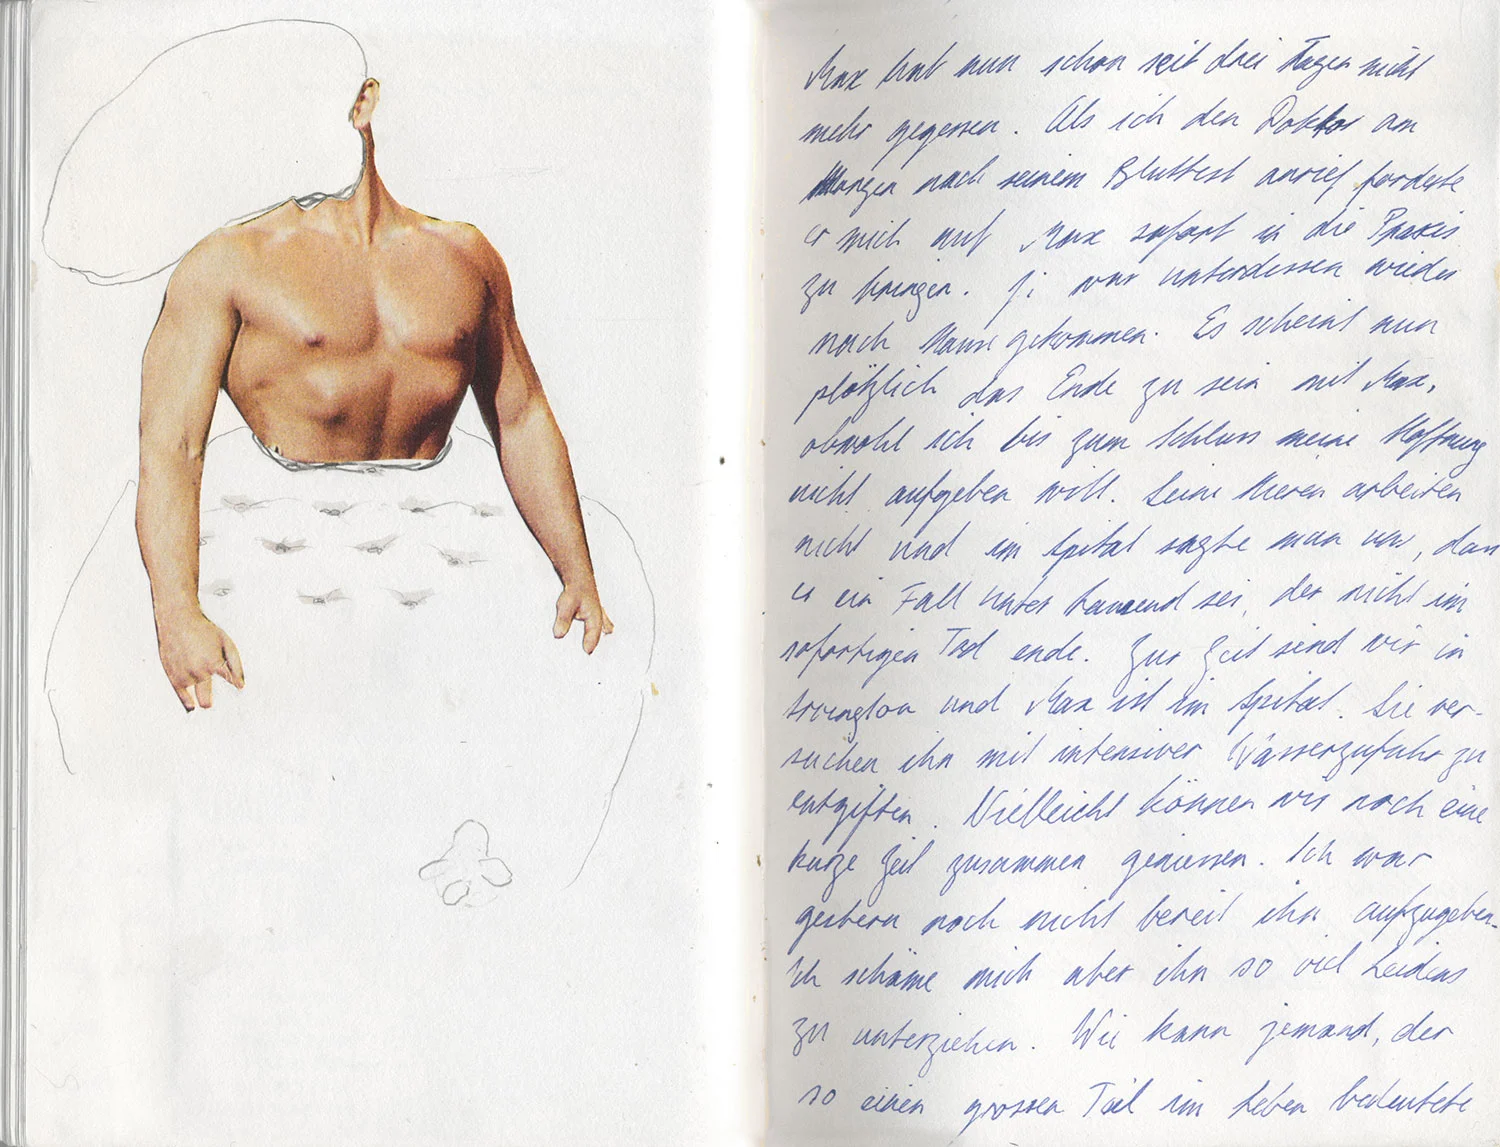 Max hat nun schon seit drei Tagen nicht
mehr gegessen. Als ich den Doktor am
Morgen nach seinem Bluttest anrief forderte
er mich auf Max sofort in die Praxis
zu bringen. Ji war unterdessen wieder
nach Hause gekommen. Es scheint nun
plötzlich das Ende zu sein mit Max,
obwohl ich bis zum Schluss meine Hoffnung
nicht aufgeben will. Seine Nieren arbeiten
nicht und im Spital sagte man uns, dass
es ein Fall unter tausend sei, der nicht im
sofortigen Tod ende. Zur Zeit sind wir in
und Max ist im Spital. Sie ver-
suchen ihn mit intensiver Wasserzufuhr zu
entgiften. Vielleicht können wir noch eine
kurze Zeit zusammen geniessen. Ich war
gestern noch nicht bereit ihn aufzugeben.
Ich schäme mich aber ihn so viel Leidens
zu unterziehen. Wie kann jemand, der
so einen grossen Teil im Leben bedeutete